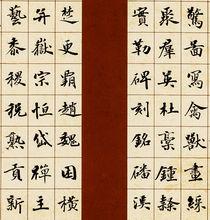 驚圖寫禽獸畫綵
聚羣英杜稾鍾隸
實勒碑刻銘磻溪
楚更霸趙魏困橫
并嶽宗恒岱禪主
藝黍稷稅熟貢新